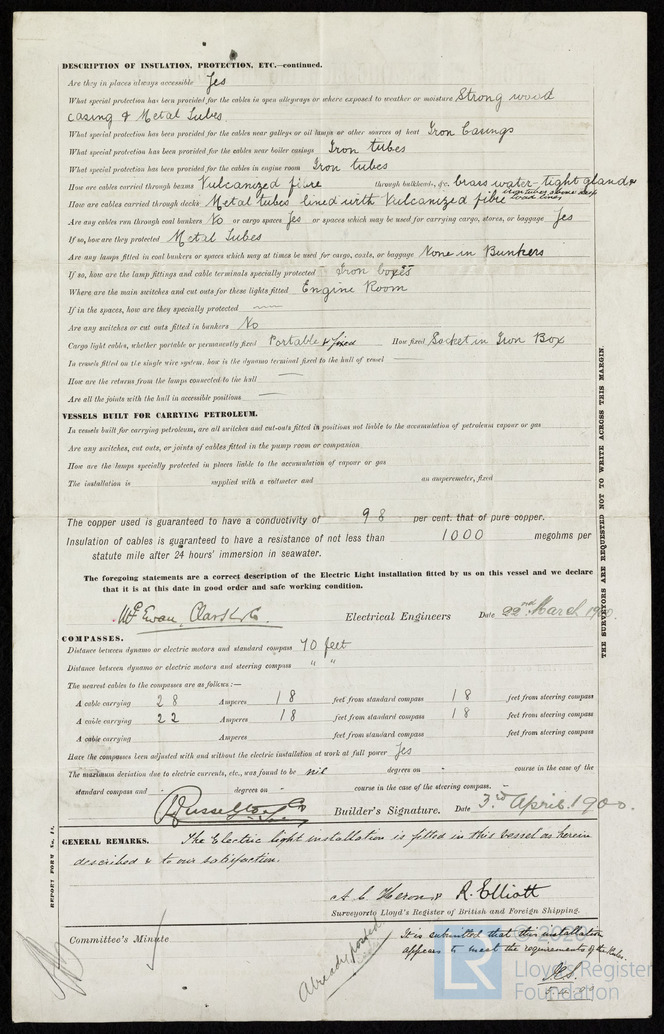 DESCRIPTION OF INSULATION, PROTECTION, ETC.—continued.
Are they in places always accessible Yes
What special protection has been provided for the cables in open alleyways or where exposed to weather or moisture Strong wood
casing & Metal Tubes.
What special protection has been provided for the cables near galleys or oil lamps or other sources of heat Iron Casings
What special protection has been provided for the cables near boiler casings Iron tubes
What special protection has been provided for the cables in engine room Iron tubes
How are cables carried through beams Vulcanized fibre through bulkheads, &c. brass water-tight glands
How are cables carried through decks Metal tubes lined with Vulcanized fibre
Are any cables run through coal bunkers No or cargo spaces Yes or spaces which may be used for carrying cargo, stores, or baggage Yes
If so, how are they protected Metal Tubes
Are any lamps fitted in coal bunkers or spaces which may at times be used for cargo, coals, or baggage None in Bunkers
If so, how are the lamp fittings and cable terminals specially protected Iron boxes
Where are the main switches and cut outs for these lights fitted Engine Room
If in the spaces, how are they specially protected
Are any switches or cut outs fitted in bunkers No
Cargo light cables, whether portable or permanently fixed Portable & fixed How fixed Socket in Iron Box
In vessels fitted on the single wire system, how is the dynamo terminal fixed to the hull of vessel —
How are the returns from the lamps connected to the hull —
Are all the joints with the hull in accessible positions —
VESSELS BUILT FOR CARRYING PETROLEUM.
In vessels built for carrying petroleum, are all switches and cut-outs fitted in positions not liable to the accumulation of petroleum vapour or gas
Are any switches, cut outs, or joints of cables fitted in the pump room or companion
How are the lamps specially protected in places liable to the accumulation of vapour or gas
The installation is supplied with a voltmeter and an amperemeter, fixed
The copper used is guaranteed to have a conductivity of 98 per cent. that of pure copper.
Insulation of cables is guaranteed to have a resistance of not less than 1000 megohms per
statute mile after 24 hours' immersion in seawater.
The foregoing statements are a correct description of the Electric Light installation fitted by us on this vessel and we declare
that it is at this date in good order and safe working condition.
McEwan, Clark & Co. Electrical Engineers Date 22nd March 1900
COMPASSES.
Distance between dynamo or electric motors and standard compass 70 feet
Distance between dynamo or electric motors and steering compass " "
The nearest cables to the compasses are as follows:—
A cable carrying 28 Amperes 18 feet from standard compass 18 feet from steering compass
A cable carrying 22 Amperes 18 feet from standard compass 18 feet from steering compass
A cable carrying Amperes feet from standard compass feet from steering compass
Have the compasses been adjusted with and without the electric installation at work at full power Yes
The maximum deviation due to electric currents, etc., was found to be nil degrees on - course in the case of the
standard compass and - degrees on - course in the case of the steering compass. -
Russell & Co Builder's Signature. Date 3rd April 1900.
GENERAL REMARKS. The Electric light installation is fitted in this vessel as herein
described & to our satisfaction.
A. C. Heron & R. Elliott
Surveyors to Lloyd's Register of British and Foreign Shipping.
Committee's Minute
Already posted
It is submitted that this installation
appears to meet the requirements of the Rules.
THE SURVEYORS ARE REQUESTED NOT TO WRITE ACROSS THIS MARGIN.
REPORT FORM No. 14.
LR
Lloyd's Register
Foundation